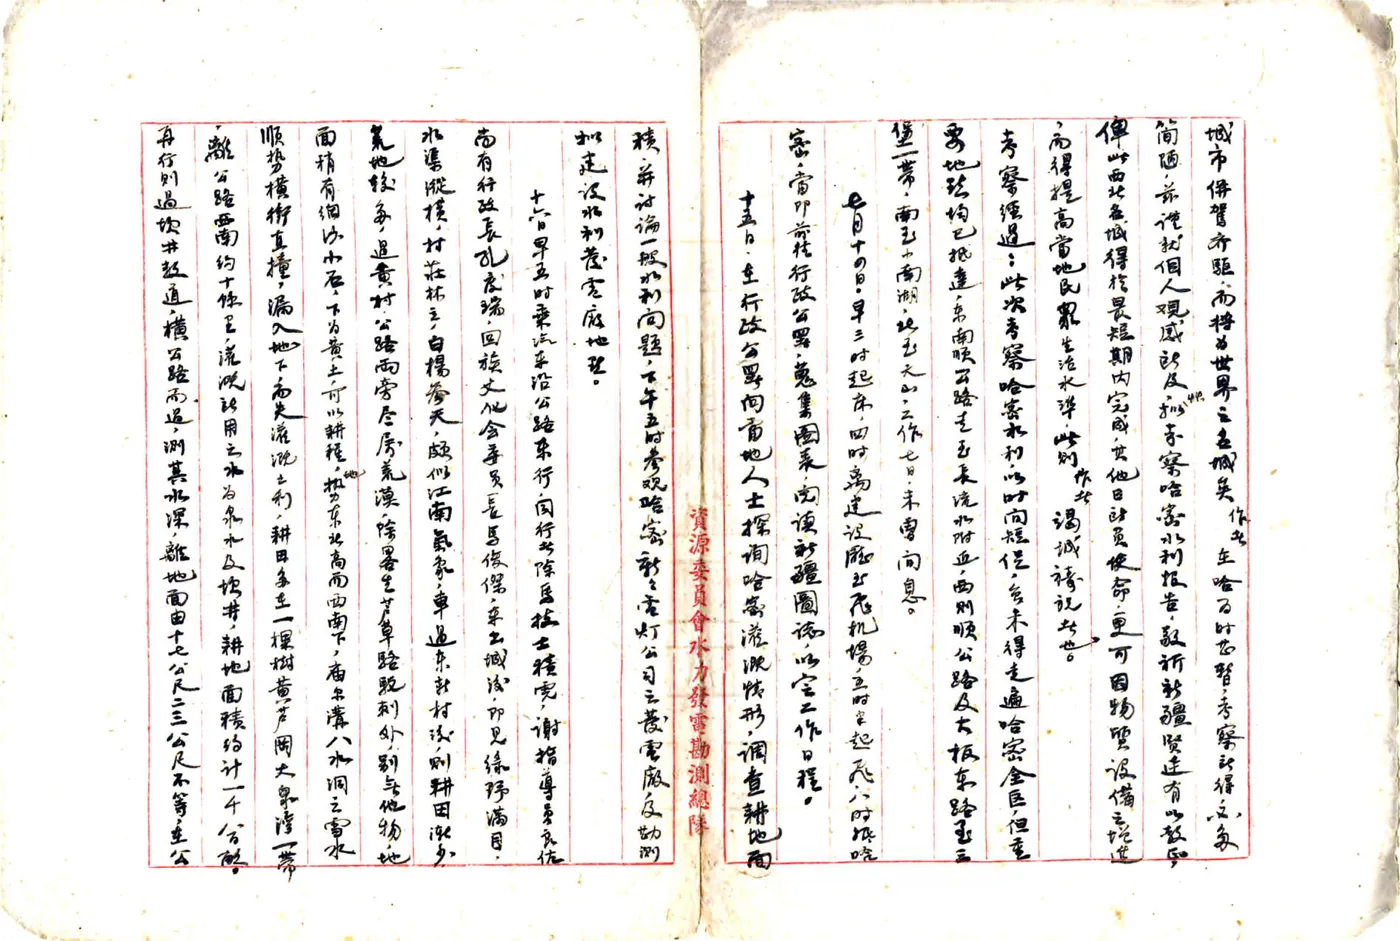 城市併駕齊驅，而將為世界之名城矣作者在哈為時甚暫，考察所得亦多
簡陋，茲謹就個人觀感所及，擬率察哈密水利報告，敬祈新疆賢達有以教正，
俾此西北名城得於最短期內完成，其他日所負使命，更可因物質設備之增進
，而得提高當地民眾生活水準，此則作者竭誠禱祝者也。
考察經過：此次考察哈密水利，以時间短促，會未得走遍哈密全區，但重
要地點均已抵達，東南順公路走至長流水附近，西則順公路及大板東路至三
堡一帶，南至小南湖，北至天山，工作七日，未曾间息。
七月十四日，早三时起床，四时离建設廳至飛机場，五时半起飛，八时抵哈
密，當即前往行政公署，蒐集圖表，阅讀新疆圖誌，以定工作日程。
十五日，在行政公署向當地人士探詢哈密灌溉情形，調查耕地面
資源委員會水力發電勘測總隊
積，并討論一般水利问題，下午五时參观哈密新新电灯公司之發電廠及勘測
拟建設水利發電廠地點。
十六日早五时乘汽車沿公路東行，同行者除馬技士積霓，謝指導員良佐
尚有行政長孔慶瑞，回族文化会委員長馬俊傑，車出城後，即見綠野滿目，
水渠縱橫，村莊林立，白楊參天，頗似江南氣象，車過東新村後，則耕田漸少，
荒地較多，過黃村，公路兩旁尽屬荒漠，除畧生芦草駱駝刺外，別無他物，地
面稍有細沙小石，下为黄土，可以耕種，地势东北高而西南下，庙尔溝八水洞之雪水
順势橫衝直撞，漏入地下，而失灌溉之利，耕田多在一棵樹黄芦岡大泉灣一帶
，離公路西南約十餘里，灌溉所用之水为泉水及坎井，耕地面積約计一千八百畝。
再行則過坎井数道，橫公路而過，測其水深，離地面由十七公尺二三公尺不等，在公